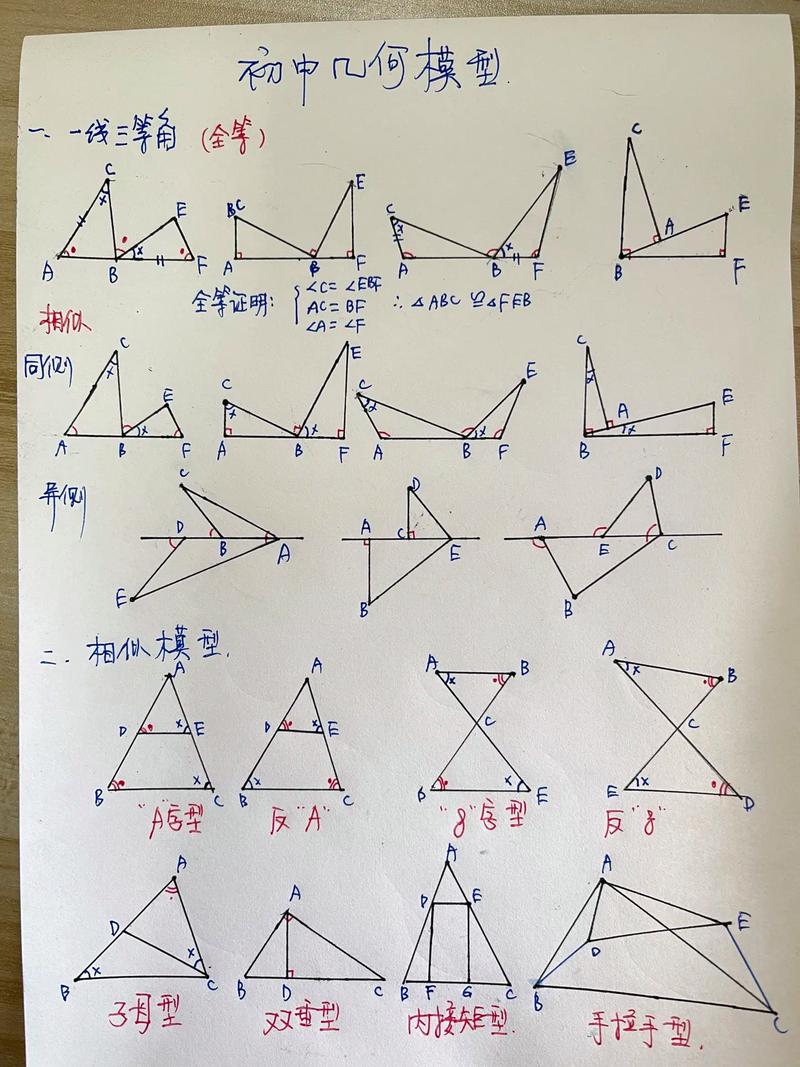 初中几何模型.
一、一线三等角（全等）
C C E E C
x B C E C x A E
A B x F A B F A B x F B F
全等证明: ∠C=∠EBF
AC=BF ∴ △ABC≌△FEB
∠A=∠F
相似
同侧
C x E C x E C x E C x A E
A B x F A B F A B x F B x F
异侧
C D B A E
A C D E B
A E D C B
二. 相似模型.
A A A B A B
D x E D x E x C x C
B x C B x C D x E E x D
"A"字型 反"A" "8"字型 反"8"
A A A A
D x D E E D
B x C B D C B F G C B C
子母型 双垂型 内接矩型. 手拉手型.